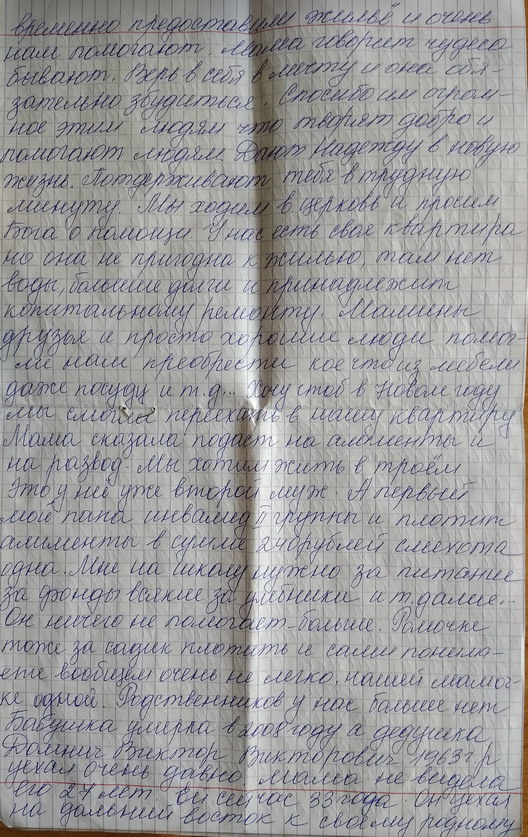 временно предоставили жильё и очень
нам помогают. Мама говорит чудеса
бывают. Верь в себя в мечту и она обя-
зательно збудиться. Спосибо им огром-
ное этим людям что творят добро и
помогают людям. Дают Надежду в новую
жизнь. Потдерживают тебя в трудную
минуту. Мы ходим в церковь и просим
Бога о помощи. У нас есть своя квартира
но она не пригодна к жилью, там нет
воды, большие долги и принадлежит
копитальному ремонту. Мамины
друзья и просто хорошие люди помог-
ли нам преобрести кое что из мебели
даже посуду и т.д... Хочу чтоб в Новом году
мы смогли переехать в нашу квартиру
Мама сказала подаст на алименты и
на развод. Мы хотим жить в троём
Это у неё уже второй муж. А первый
мой папа инвалид II группы и платит
алименты в сумме 240рублей смехота
одна. Мне на школу нужно за питание
за фонды всякие за учебники и т.далие...
Он ничего не помогает больше. Ромочке
тоже за садик платить и сами понима-
ете вообщем очень не легко, нашей мамоч-
ке одной. Родственников у нас больше нет
Бабушка умерла в 2008 году а дедушка
Виктор Викторович 1963г/р
уехал очень давно мама не видела
его 27 лет. Ей сейчас 33 года. Он уехал
на дальний восток к своему родному